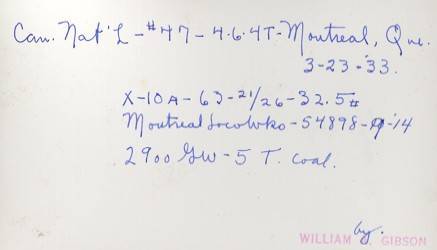 Can. Nat'L - #47 - 4-6-4T - Montreal, Que.
3-23-'33.
X-10A - 63 - 21/26 - 32.5#
Montreal Loco Wks - 54898 - 9-'14
2900 GW - 5 T. coal.
by.
WILLIAM GIBSON